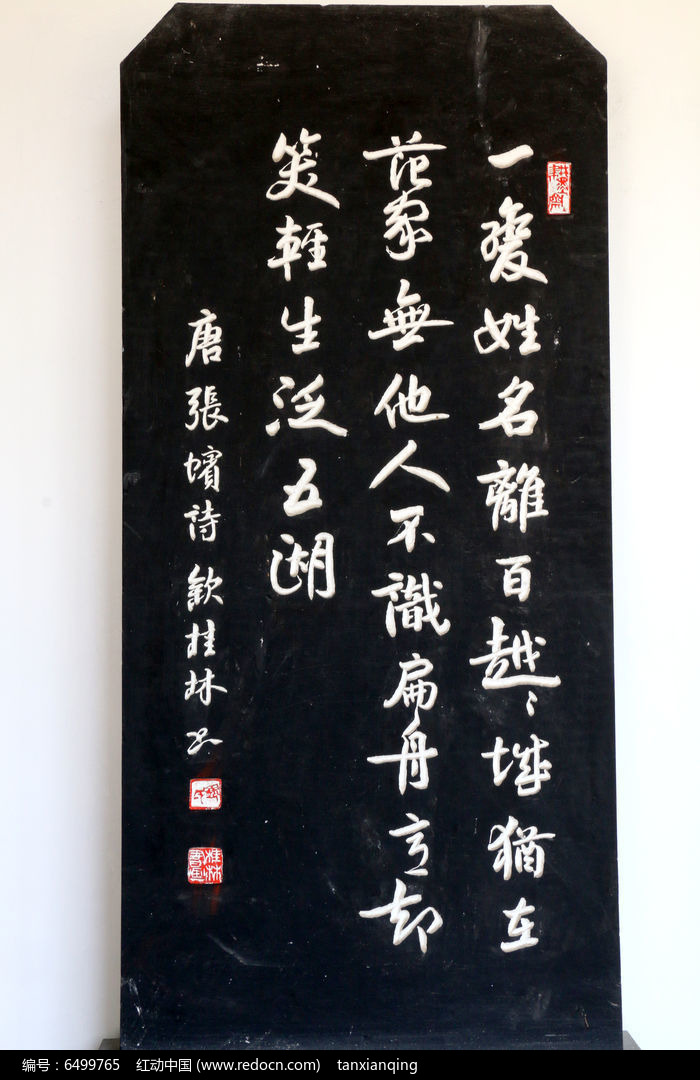 一變姓名離百越〻城猶在
范家無他人不識扁舟意却
笑輕生泛五湖
唐張蠙詩 桂林书
桂林書画
编号：6499765 红动中国 (www.redocn.com) tanxianqing